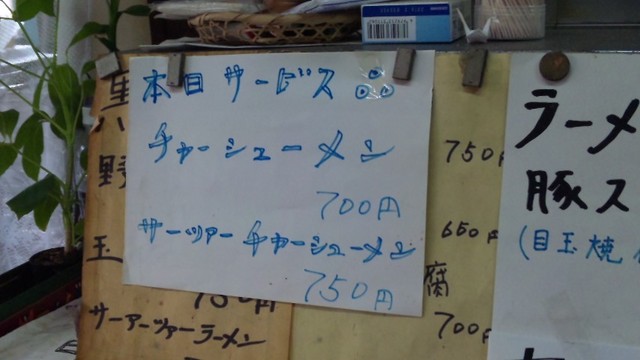 本日サービス品
チャーシューメン
700円
サーツァーチャーシューメン
750円
野
玉
750円
サーアーツァーラーメン
750円
650円
腐
700円
ラーメ
豚ス
(目玉焼